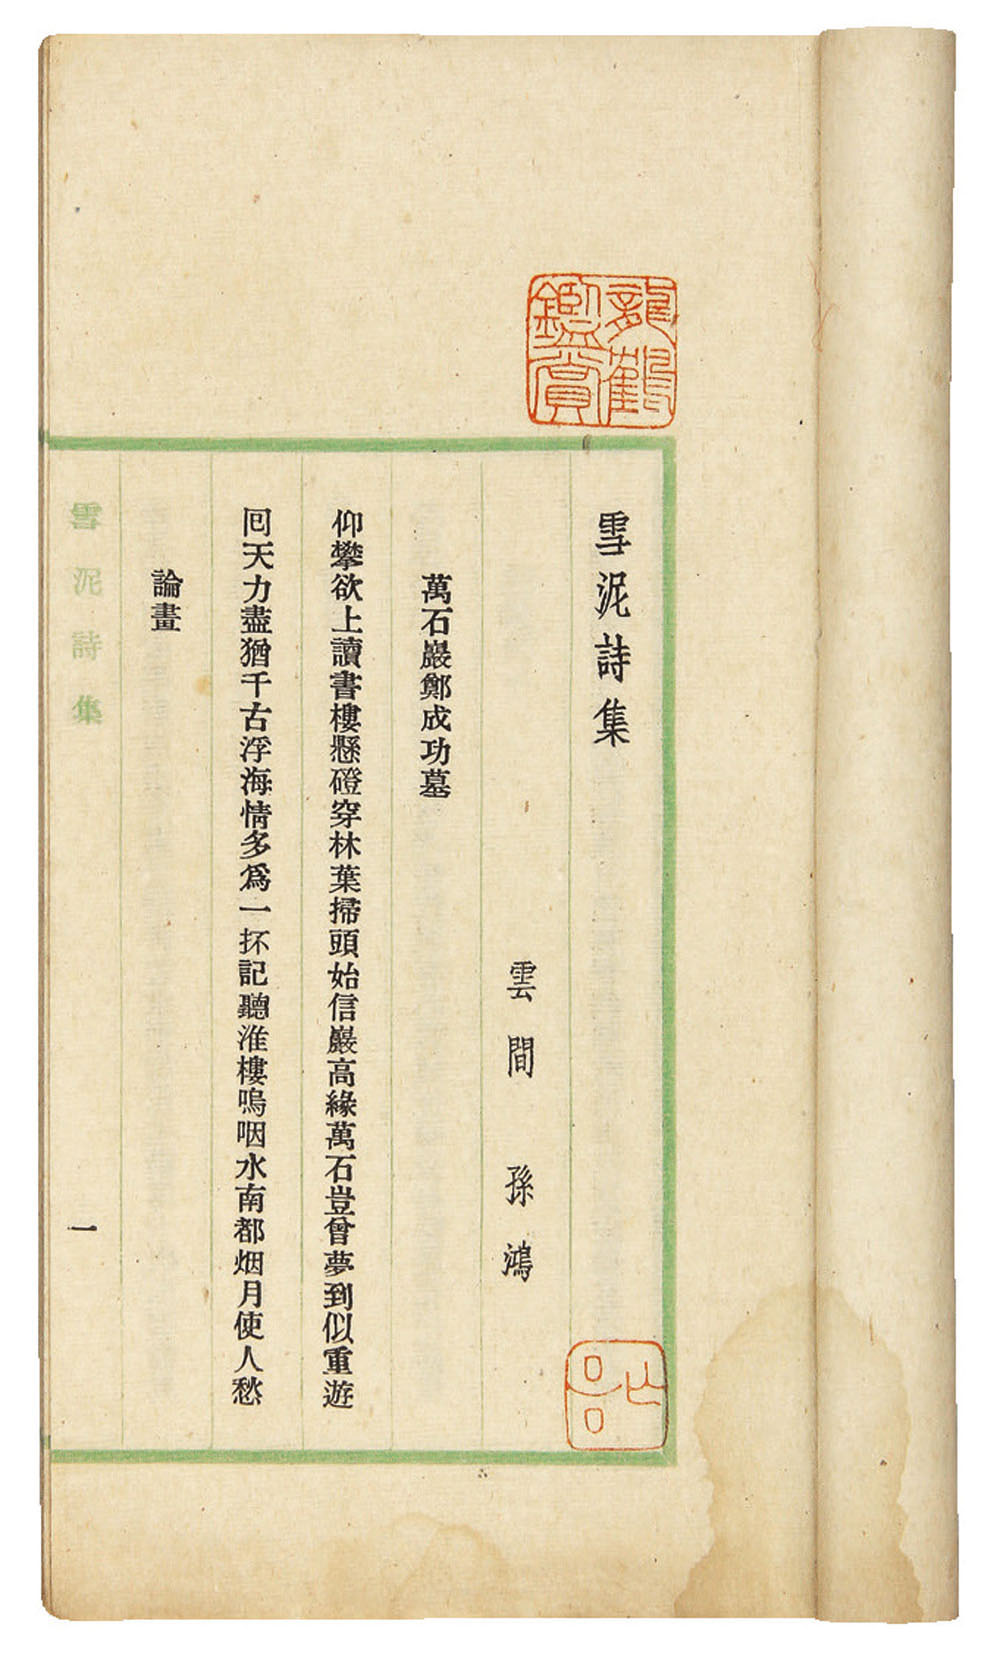 龍鶴鑑賞
雪泥詩集
雲間 孫鴻
萬石巖鄭成功墓
仰攀欲上讀書樓懸磴穿林葉掃頭始信巖高緣萬石豈曾夢到似重遊
回天力盡猶千古浮海情多爲一抔記聽淮樓嗚咽水南都烟月使人愁
論畫
雪泥詩集
一